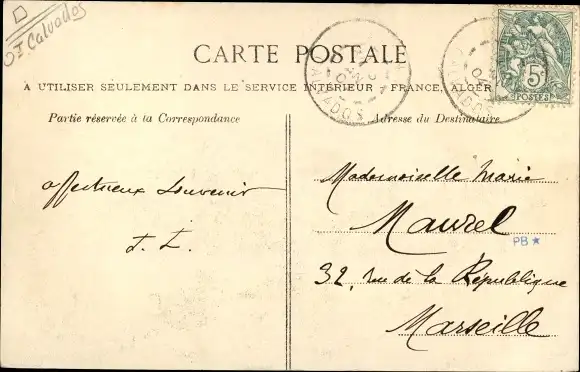 Calvados
CARTE POSTALE
A UTILISER SEULEMENT DANS LE SERVICE INTÉRIEUR FRANCE, ALGÉR
Partie réservée à la Correspondance
Adresse du Destinataire
CALVADOS
5c
POSTES
affectueux souvenir
Mademoiselle Marie
Maurel
PB
32, rue de la République
Marseille